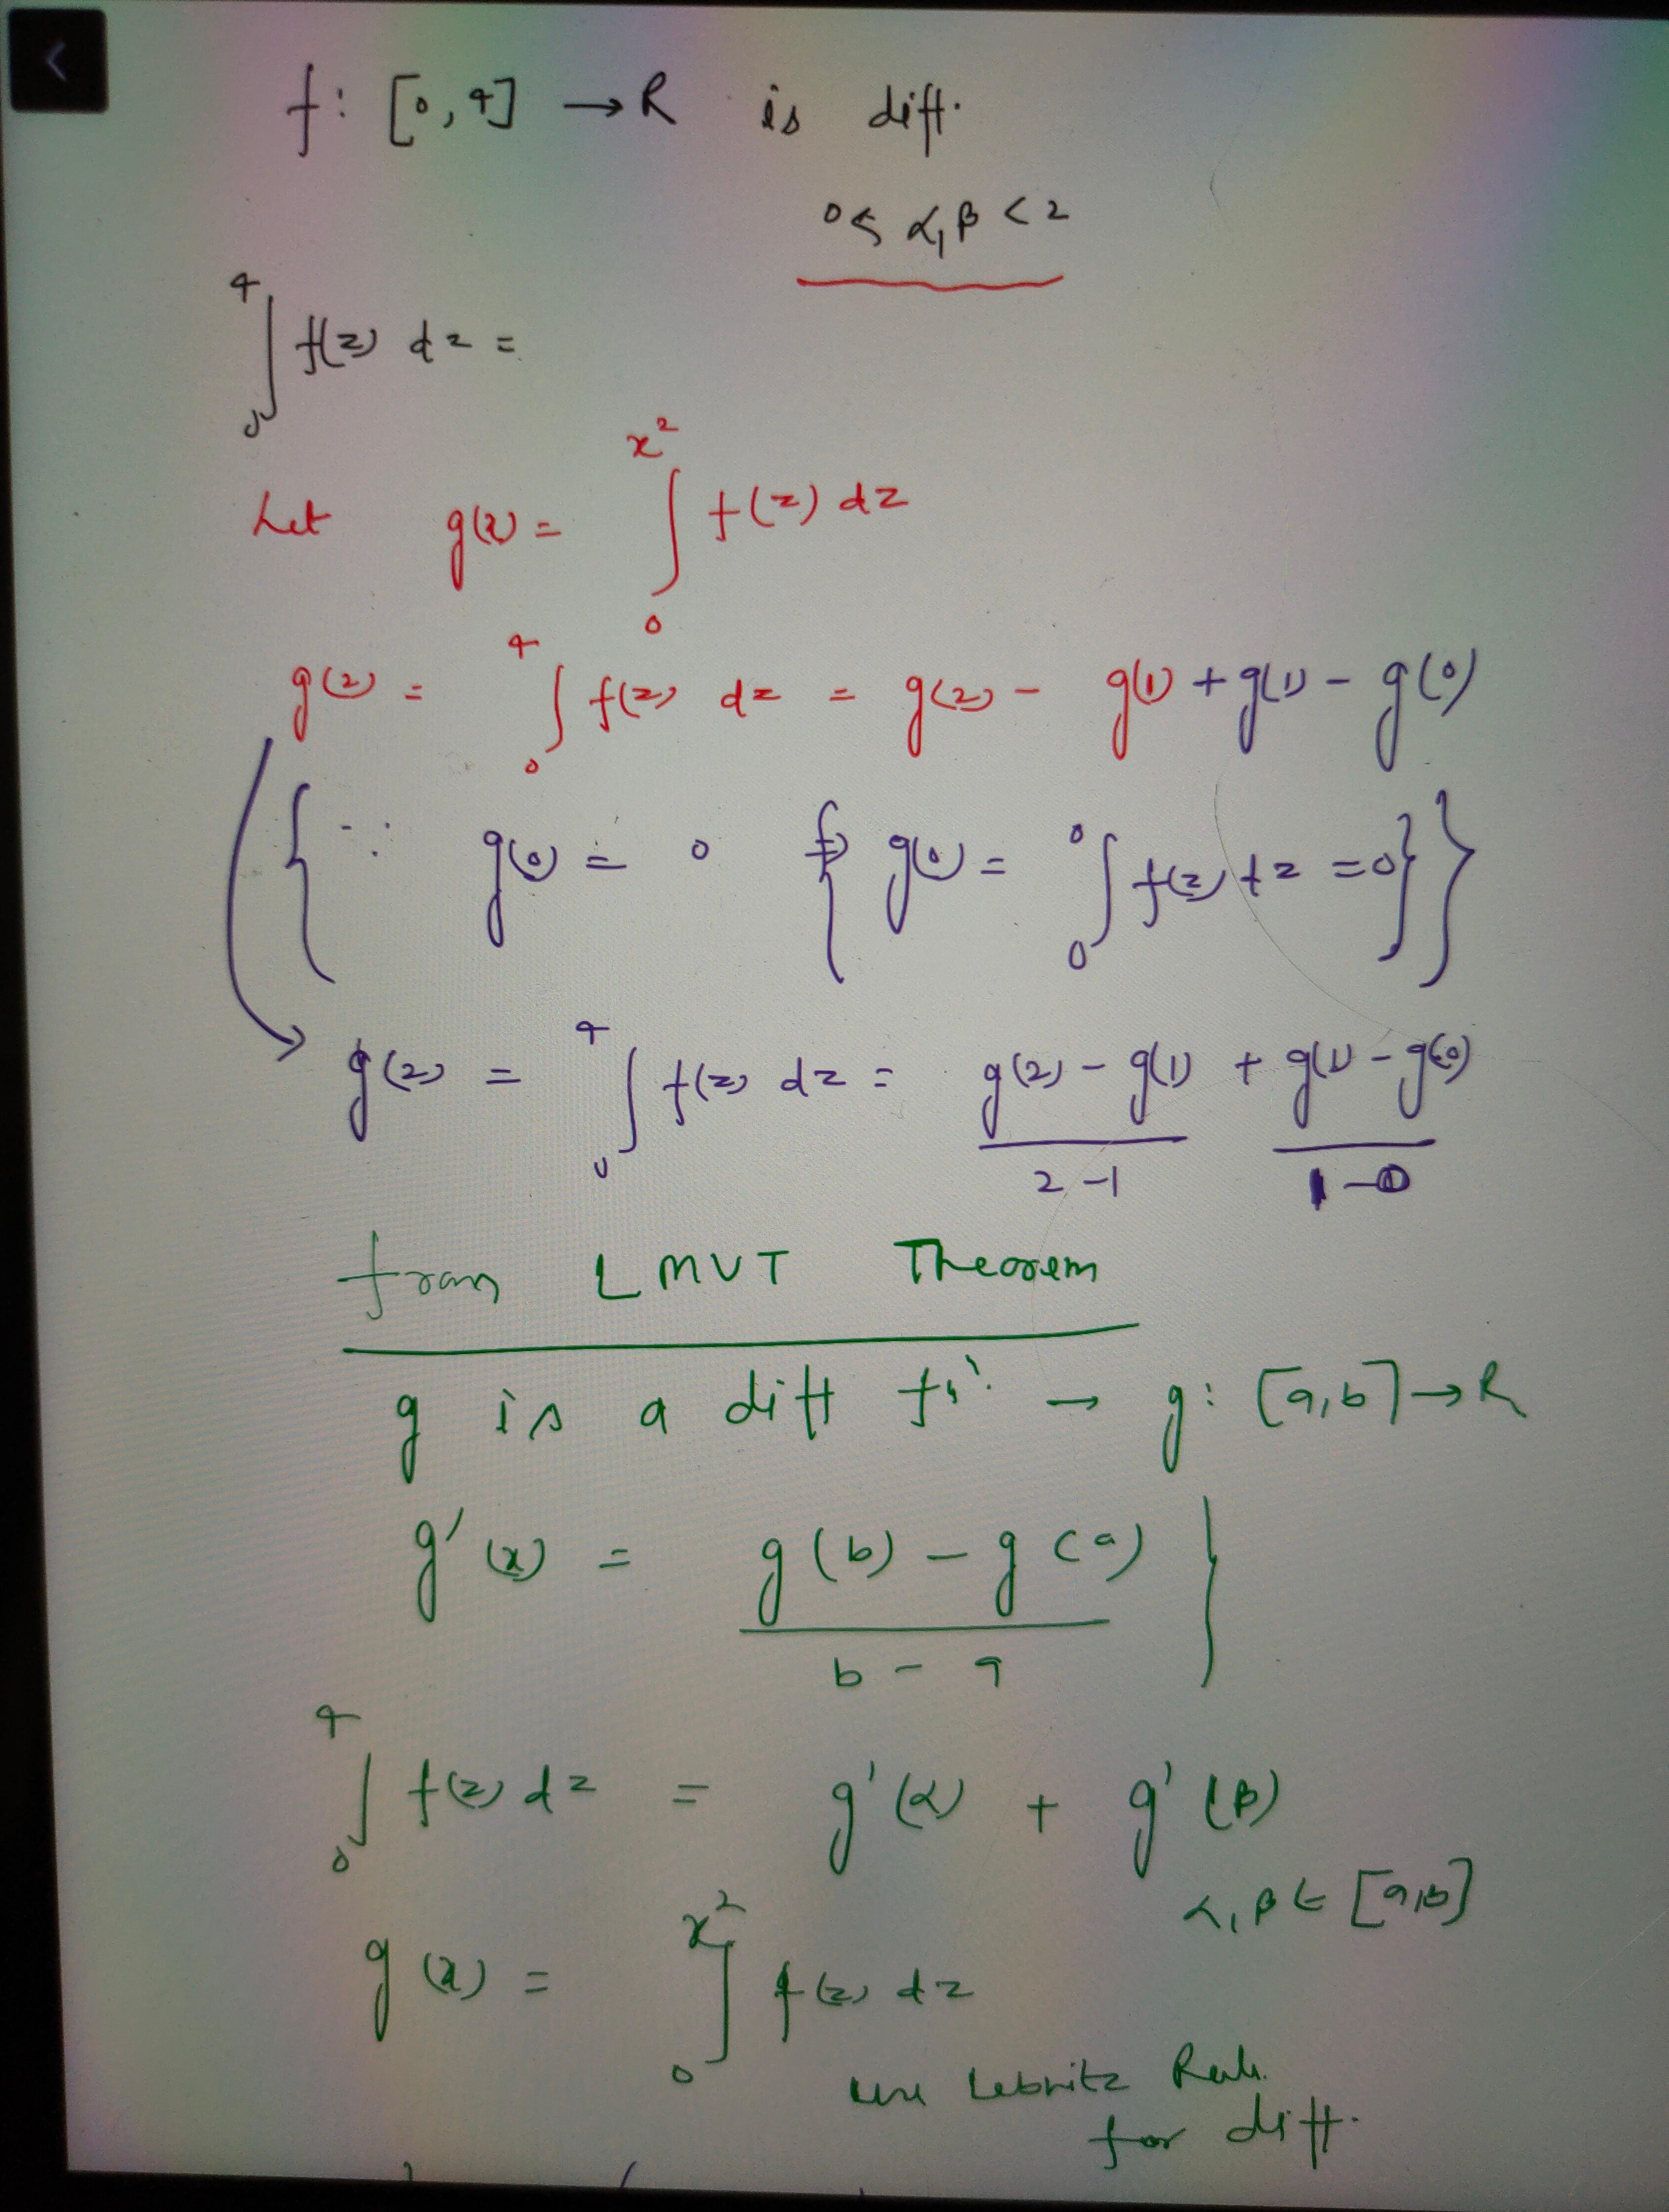 f: [0,4] → R is diff.
0 ≤ α, β < 2
∫₀⁴ f(z) dz =
Let g(x) = ∫₀^{x²} f(z) dz
g(2) = ∫₀⁴ f(z) dz = g(2) - g(1) + g(1) - g(0)
{ ∵ g(0) = 0 { g(0) = ∫₀⁰ f(z) dz = 0 } }
g(2) = ∫₀⁴ f(z) dz = (g(2) - g(1))/(2 - 1) + (g(1) - g(0))/(1 - 0)
from LMVT Theorem
g is a diff fn. → g: [a,b] → R
g'(x) = (g(b) - g(a))/(b - a) }
∫₀⁴ f(z) dz = g'(α) + g'(β)
α, β ∈ [a,b]
g(x) = ∫₀^{x²} f(z) dz
use Lebnitz Rule
for diff.